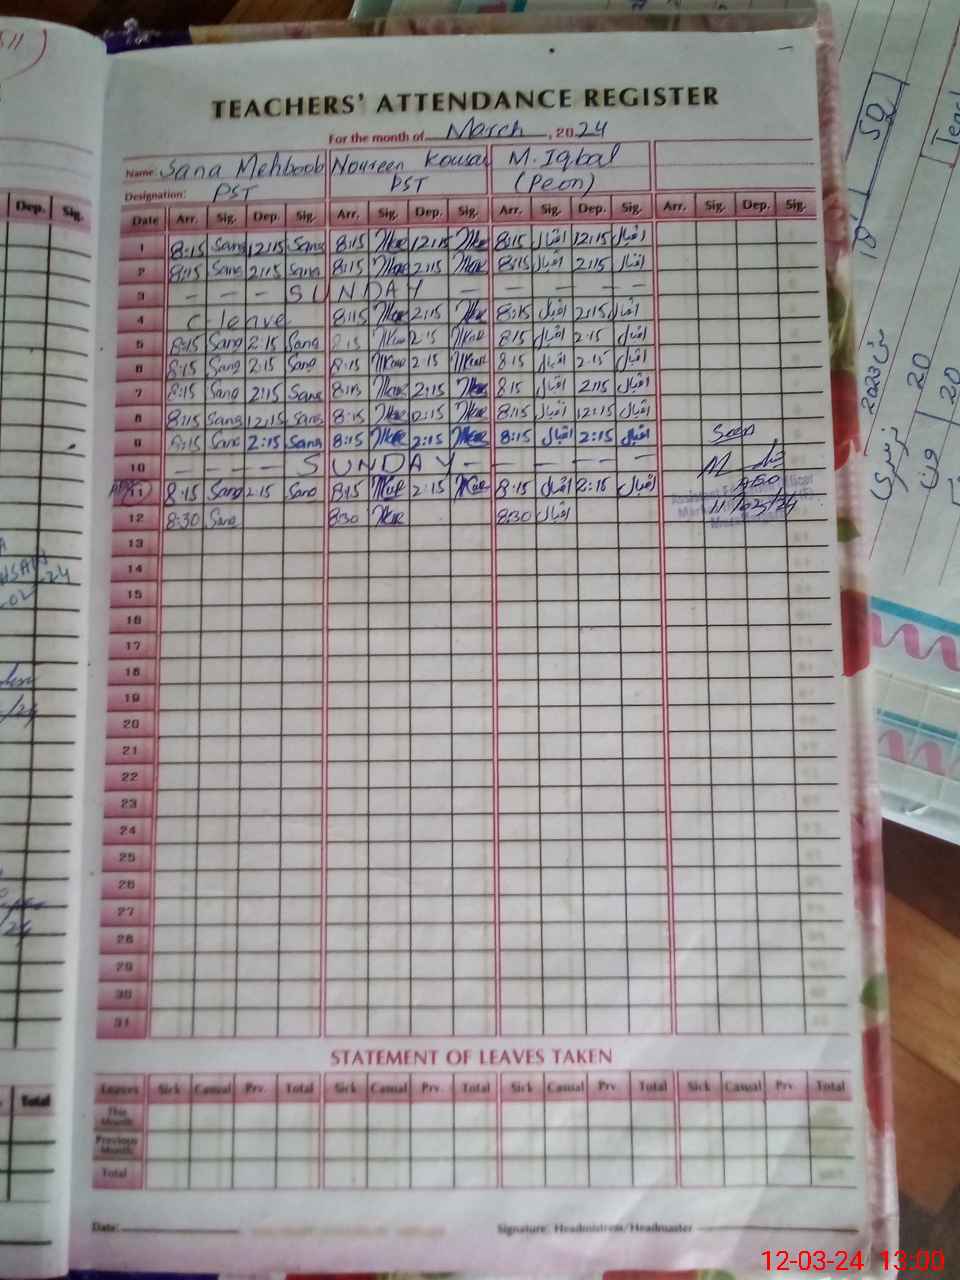 TEACHERS' ATTENDANCE REGISTER
For the month of March, 2024
Name Sana Mehboob Noureen Kousar M. Iqbal
Designation: PST PST (Peon)
Dep. Sig. Date Arr. Sig. Dep. Sig. Arr. Sig. Dep. Sig. Arr. Sig. Dep. Sig. Arr. Sig. Dep. Sig.
1 8:15 Sana 12:15 Sana 8:15 12:15 8:15 اقبال 12:15 اقبال
2 8:15 Sana 2:15 Sana 8:15 2:15 8:15 اقبال 2:15 اقبال
3 — — — S U N D A Y — — — — —
4 C-leave 8:15 2:15 8:15 اقبال 2:15 اقبال
5 8:15 Sana 2:15 Sana 8:15 2:15 8:15 اقبال 2:15 اقبال
6 8:15 Sana 2:15 Sana 8:15 2:15 8:15 اقبال 2:15 اقبال
7 8:15 Sana 2:15 Sana 8:15 2:15 8:15 اقبال 2:15 اقبال
8 8:15 Sana 12:15 Sana 8:15 12:15 8:15 اقبال 12:15 اقبال
9 8:15 Sana 2:15 Sana 8:15 2:15 8:15 اقبال 2:15 اقبال Seen
10 — — — — S U N D A Y — — — — —
11 8:15 Sana 2:15 Sana 8:15 2:15 8:15 اقبال 2:15 اقبال AEO
12 8:30 Sana 8:30 8:30 اقبال 11/03/24
13
14
15
16
17
18
19
20
21
22
23
24
25
26
27
28
29
30
31
STATEMENT OF LEAVES TAKEN
Total Leaves Sick Casual Prv. Total Sick Casual Prv. Total Sick Casual Prv. Total Sick Casual Prv. Total
This Month
Previous Month
Total
Date: Signature: Headmistress/Headmaster
50
18
2023
نرسری
20
ون
20
12-03-24 13:00